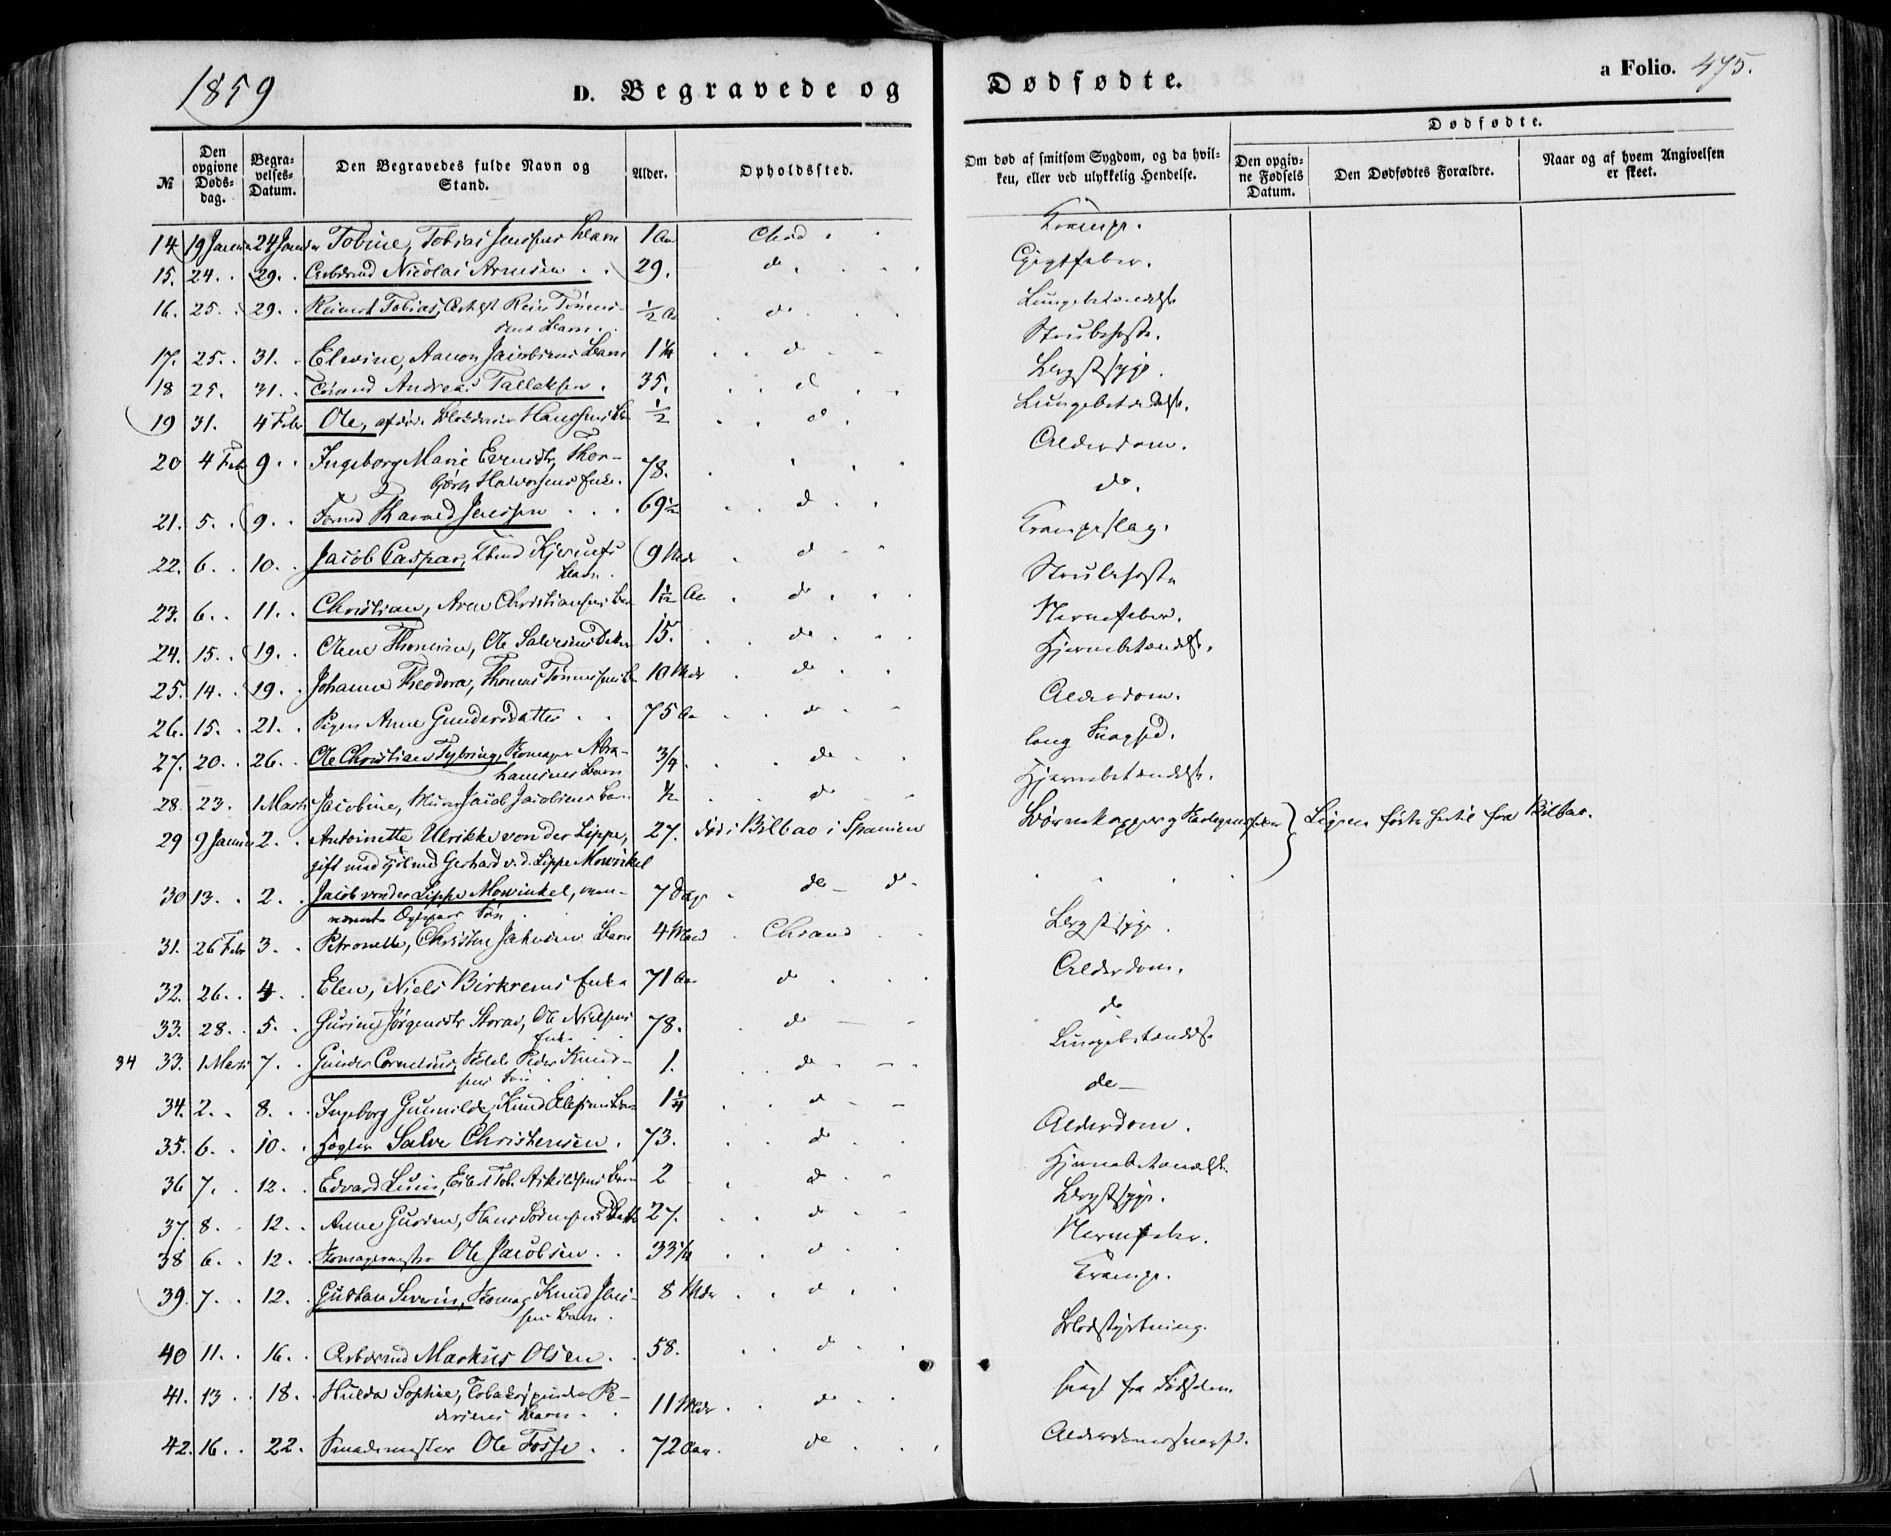 1859
D. Begravede og Dødfødte.
a Folio. 475.
№
Den opgivne Døds-dag.
Begra-velses-Datum.
Den Begravedes fulde Navn og Stand.
Alder.
Opholdssted.
Om død af smitsom Sygdom, og da hvil-ken, eller ved ulykkelig Hendelse.
Dødfødte.
Den opgiv-ne Fødsels Datum.
Den Dødfødtes Forældre.
Naar og af hvem Angivelsen er skeet.
14 19 Januar 24 Januar Tobine, Tobias Jensens Barn 1 Aar Chsd Krampe.
15. 24. 29. Arbdsmd Nicolai Arnesen 29. do Gigtfeber.
16. 25. 29. Tobias, 1/2 Aar do Lungebetændelse
Barn.
17. 25. 31. Elevine, Aanon Jacobsens Barn do Strubehoste.
18 25. 31. Andreas Tallaksen. 35. d Brystsyge.
19 31. 4 Febr Ole, Hansens 1/2 d. Lungebetændelse.
20 4 Feb 9. Ingeborg Marie Evensdtr, Thor- 78. Alderdom.
bjørn Halvorsens Enke.
21. 5. 9. Harald Jensen 69 d do.
22. 6. 10. Jacob Caspar, 9 Mdr d Krampeslag.
Barn.
23. 6. 11. Christian, Aren Christiansens Barn Aar d Strubehoste
24. 15. 19. Olene Thomine, Ole Salvesens Datter 15. do Nervefeber.
25. 14. 19. Johanne Theodora, Thomas Tønnessens 10 Mdr do Hjernebetændelse.
26. 15. 21. Pigen Anne Gundersdatter 75 Aar do Alderdom.
27. 20. 26. Ole Christian Fybring, Skomager Abra- 3/4 do lang Svaghed.
hamsens Barn
28. 23. 1 Marts Jacobine, Murer Jacob Jacobsens Barn 1/2 do Hjernebetændelse.
29 9 Januar 2. Antoinette Ulrikke von der Lippe, 27. død i Bilbao i Spanien Børnekopper og Barselfeber } Ligene førte hertil fra Bilbao.
gift med Kjøbmd Gerhard v. d. Lippe Mowinkel
30 13. 2. Jacob von der Lippe Mowinkel, oven- 7 Dage do d
nævnte Søn
31. 26 Febr 3. Petronelle, Christen Barn 4 Mdr Chsand Brystsyge.
32. 26. 4. Elen, Niels Birkrems Enke 71 Aar d Alderdom.
33. 28. 5. Gurine Jørgensdtr Ole Nielsens 78. do do
Enke
34 33. 1 Marts 7. Gunder Cornelius, Peder Knud- 1. do Lungebetændelse
sens Søn
34. 2. 8. Ingeborg Gunnilde, Knud 1 1/4 d do
35. 6. 10. Salve Christensen. 73. do Alderdom.
36 7. 12. Edvard Askildsens Barn 2 do Hjernebetændelse.
37. 8. 12. Anne Gurine, Hans Sørensens Datter 27. d Brystsyge.
38 6. 12. Skomagermester Ole Jacobsen. d Nervefeber.
39. 7. 12. Gustav Severin, Skomag Knud Jen- 8 Mdr d Krampe.
sens Barn.
40 11. 16. Arbdsmd Markus Olsen. 58. d Blodstyrtning.
41. 13 18. Hulda Sophie, Tobakspinder Pe- 11 Mdr do svagt fra Fødselen
dersens Barn.
42. 16. 22. Smedemester Ole Fosse. 72 Aar. do Alderdomssvaghed.